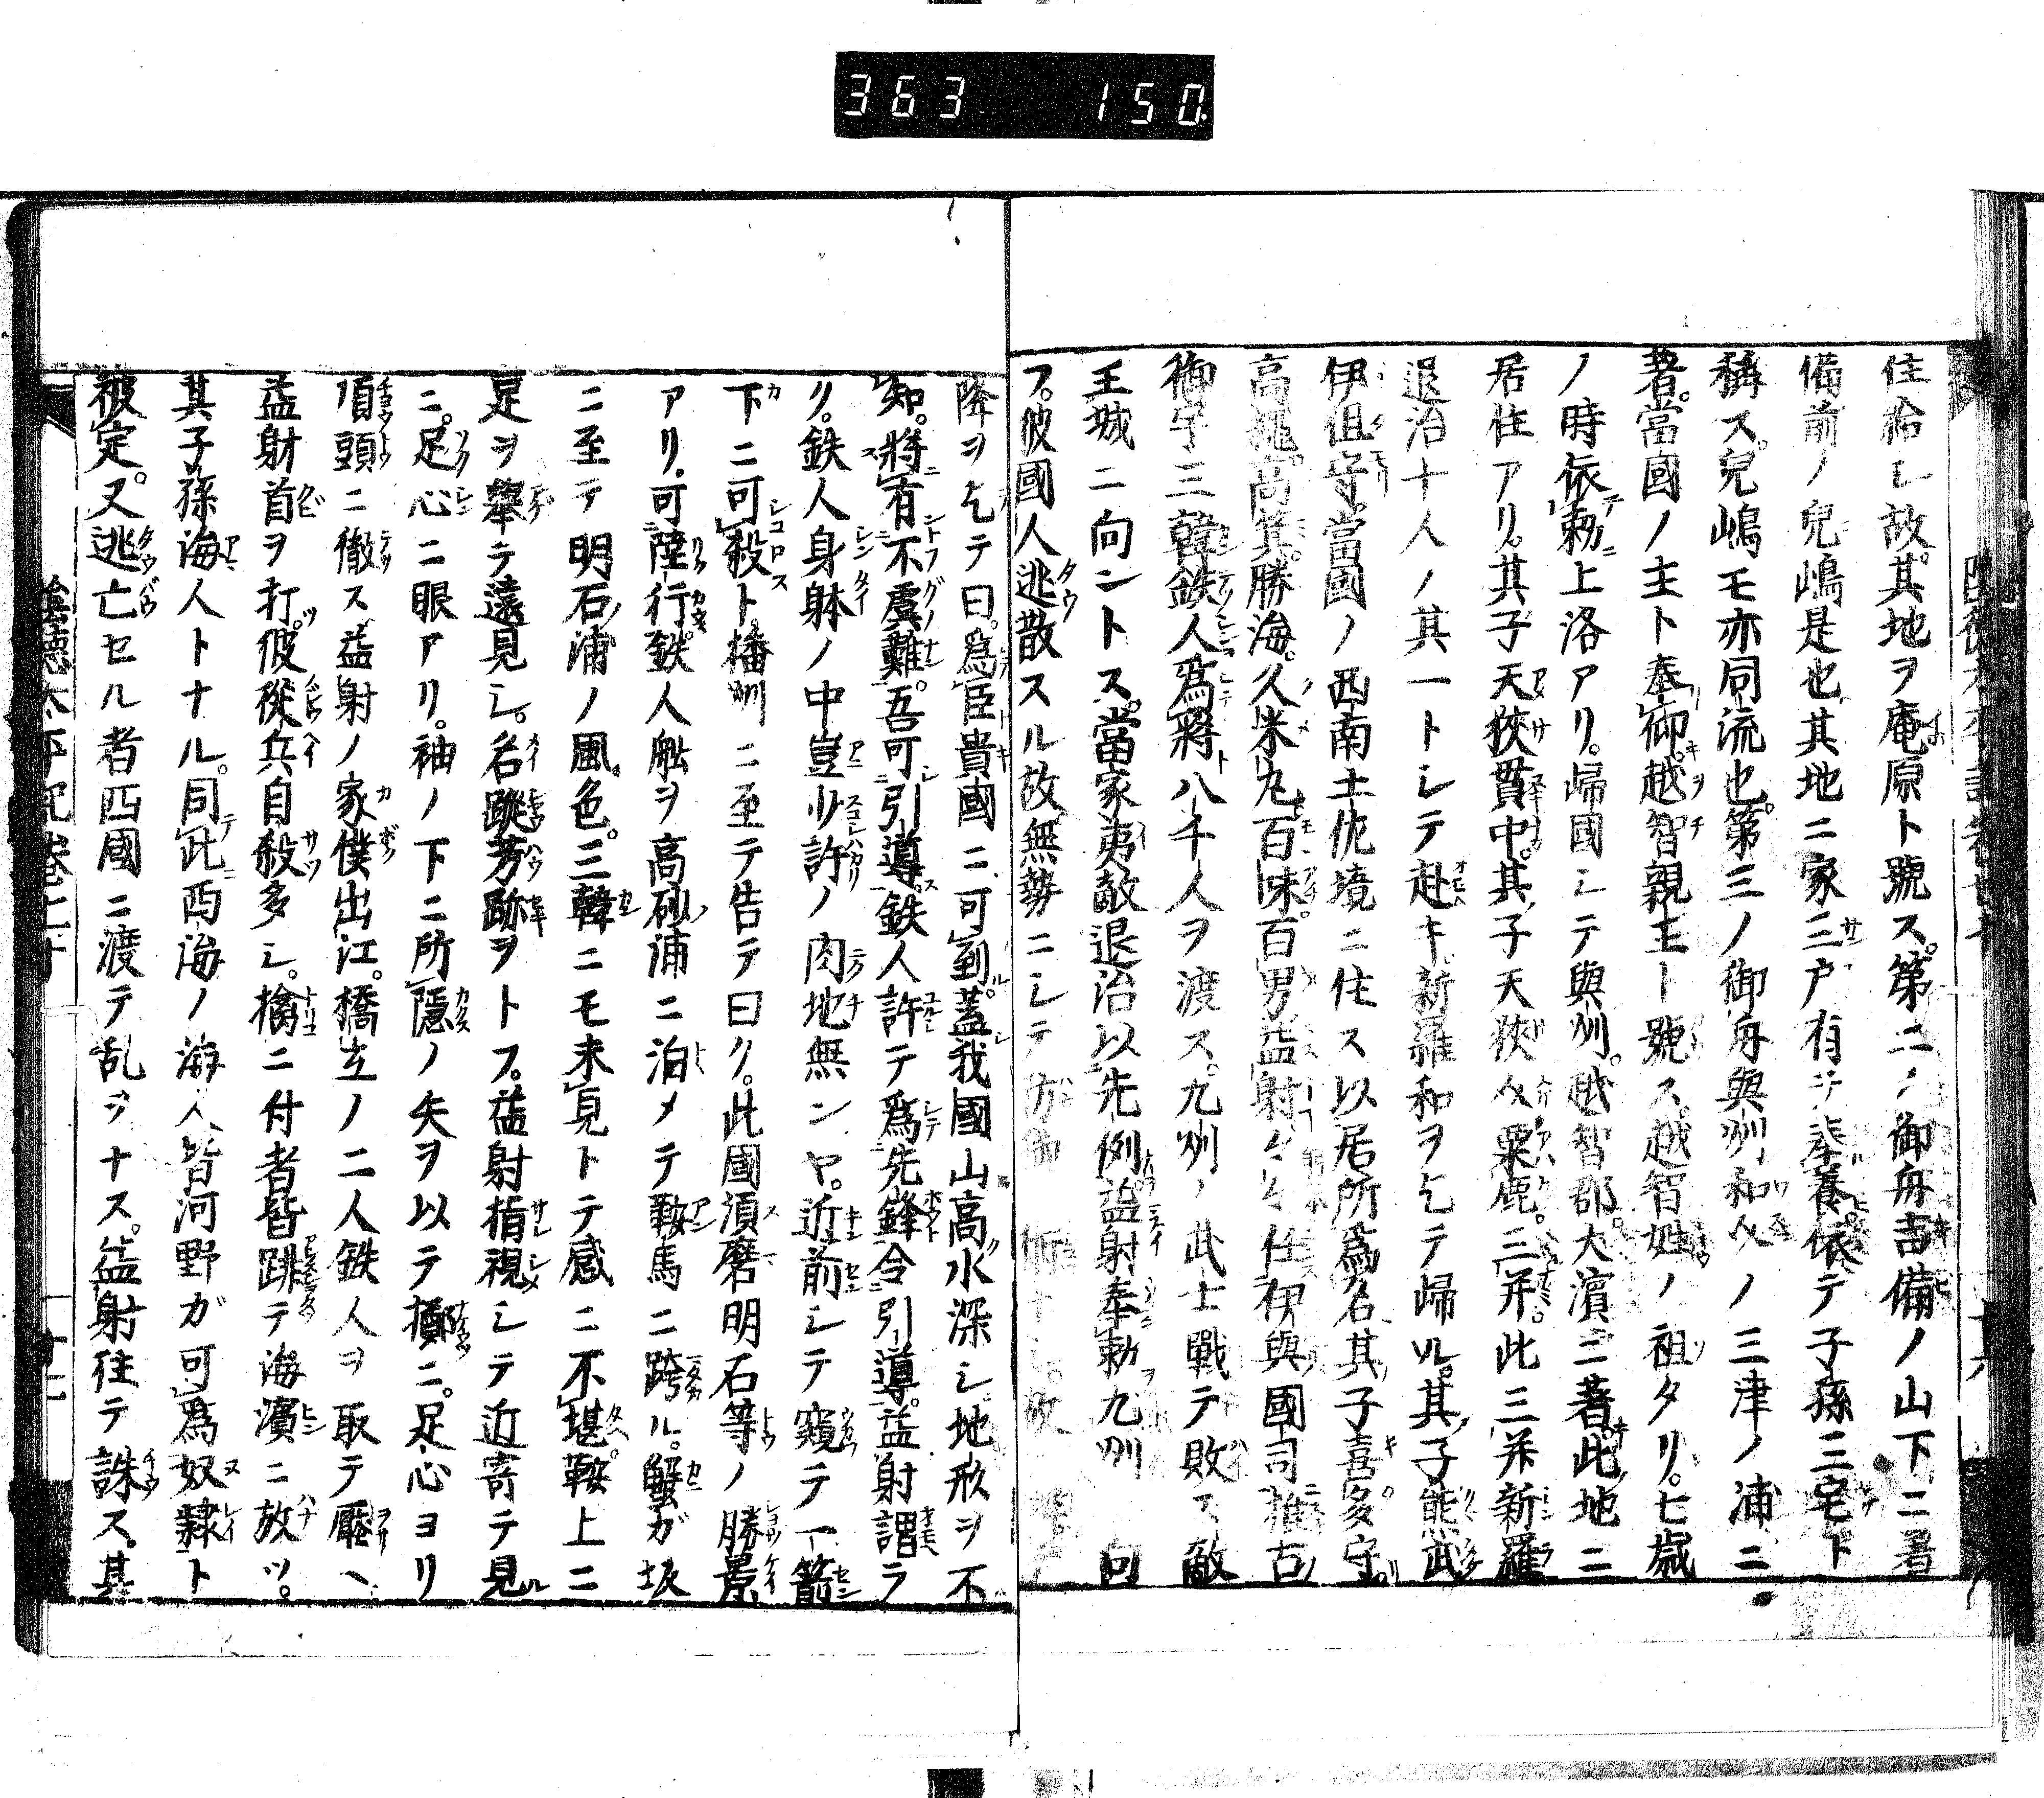 363 150
住給シ故其地ヲ庵原ト號ス。第二ノ御舟吉備ノ山下ニ著
備前ノ兒嶋是也其地ニ家三戸有テ奉養依テ子孫三宅ト
稱ス。兒嶋モ亦同流也。第三ノ御舟與州和氣ノ三津ノ浦ニ
著。當國ノ主ト奉仰。越智親王ト號ス。越智姓ノ祖タリ。七歲
ノ時依勅上洛アリ。歸國シテ與州。越智郡。大濱ニ著。此地ニ
居住アリ。其子天狹貫。其子天狹介粟鹿。三并此三并新羅
退治十人ノ其一トシテ赴キ。新羅和ヲ乞テ歸ル。其子熊武
伊但守。當國ノ西南土佐境ニ住ス以居所爲名其子喜多守。
高繩高箕。勝海。久米丸百味百男益射ヲ任伊與國司推古ノ
御宇三韓鉄人爲將八千人ヲ渡ス。九州ノ武士戰テ敗ス敵
王城ニ向ントス。當家夷敵退治以先例益射奉勅九州 向
フ。彼國人逃散スル故無勢ニシテ方術
降ヲ乞テ曰。爲臣貴國ニ可到。蓋我國山高水深シ地形ヲ不
知。將有不虞難。吾可引導。鉄人許テ爲先鋒令引導。益射謂ラ
ク。鉄人身躰ノ中豈少許ノ肉地無ンヤ。近前シテ窺テ一箭
下ニ可殺ト。播州ニ至テ告テ曰ク。此國須磨明石等ノ勝景
アリ。可陸行鉄人舩ヲ高砂浦ニ泊メテ鞍馬ニ跨ル。蟹ガ坂
ニ至テ明石浦ノ風色。三韓ニモ未見トテ感ニ不堪鞍上ニ
足ヲ舉テ遠見シ。名蹤芳跡ヲトフ。益射指視シテ近寄テ見ル
ニ。足心ニ眼アリ。袖ノ下ニ所隱ノ矢ヲ以テ擲ニ。足心ヨリ
頂頭ニ徹ス益射ノ家僕出江。橋立ノ二人鉄人ヲ取テ壓ヘ
益射首ヲ打。彼從兵自殺多シ。擒ニ付者皆跳テ海濱ニ放ツ。
其子孫海人トナル。同此西海ノ游人皆河野ガ可爲奴隸ト
被定。又逃亡セル者西國ニ渡テ乱ヲナス。益射往テ誅ス。其
陰德太平記卷二十 十七